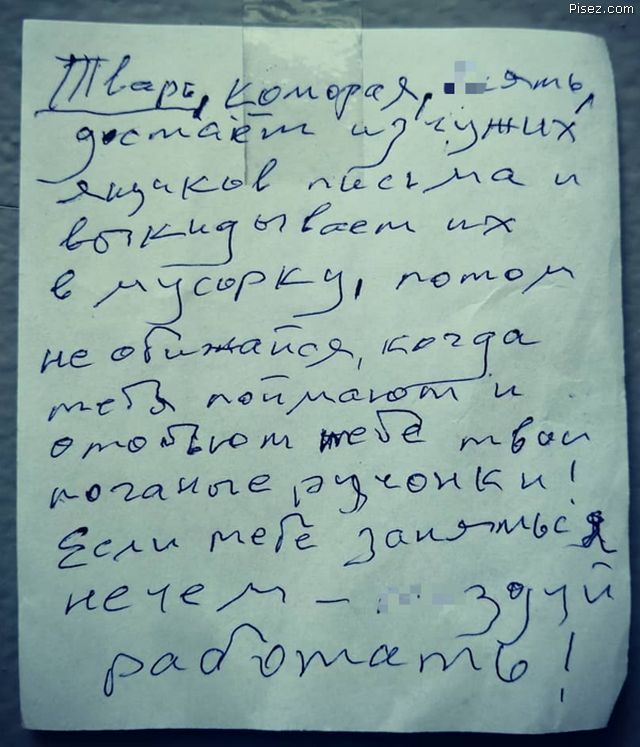 Pisez.com
Тварь, которая, ять,
достаёт из чужих
ящиков письма и
выкидывает их
в мусорку, потом
не обижайся, когда
тебя поймают и
отобьют тебе твои
поганые ручонки!
Если тебе заняться
нечем – здуй
работать!